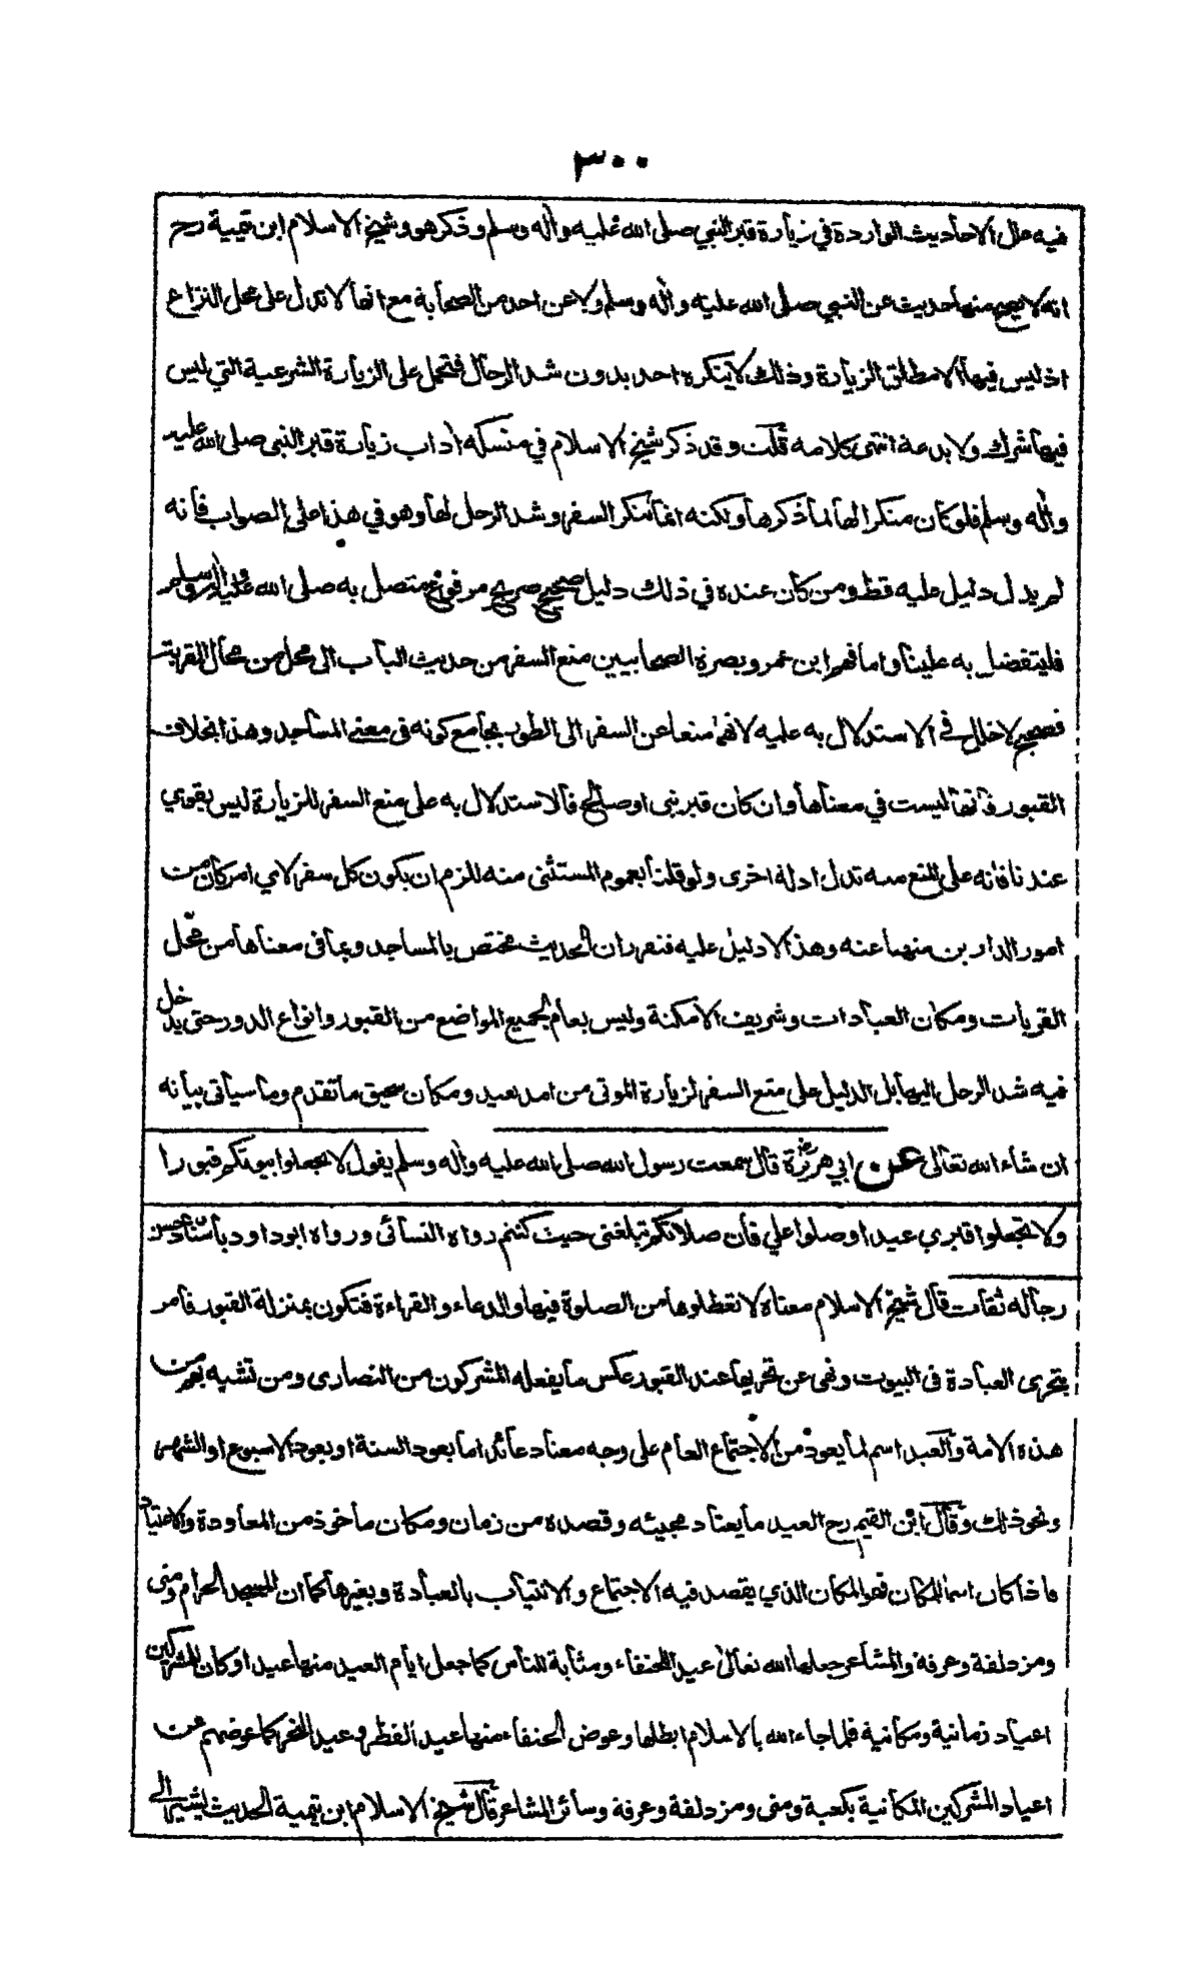 ٣٠٠
فيه علل الاحاديث الواردة في زيارة قبر النبي صلى الله عليه وأله وسلم وذكر هو وشيخ الاسلام ابن تيمية رح
انه لا يصح منها حديث عن النبي صلى الله عليه وأله وسلم ولا عن احد من الصحابة مع انها لا تدل على محل النزاع
اذ ليس فيها الا مطلق الزيارة وذلك لا ينكره احد بدون شد الرحال فتحمل على الزيارة الشرعية التي ليس
فيها شرك ولا بدعة انتهى كلامه قلت وقد ذكر شيخ الاسلام في منسكه أداب زيارة قبر النبي صلى الله عليه
وأله وسلم فلو كان منكرا لها لما ذكرها ولكنه انما أنكر السفر وشد الرحل لها وهو في هذا على الصواب فانه
لم يدل دليل عليه قط ومن كان عنده في ذلك دليل صحيح صريح مرفوع متصل به صلى الله عليه وأله وسلم
فليتفضل به علينا واما فهم ابن عمر وبصرة الصحابيين منع السفر من حديث الباب الى محل من محال القربة
فصحيح لاخلل في الاستدلال به عليه لانهما منعا عن السفر الى الطور بجامع كونه في معنى المساجد وهذا بخلاف
القبور فانها ليست في معناها وان كان قبر نبي او صالح فالاستدلال به على منع السفر للزيارة ليس بقوي
عندنا فانه على المنع منه تدل ادلة اخرى ولو قلنا بعموم المستثنى منه للزم ان يكون كل سفر لاي امر كان من
امور الدارين منهيا عنه وهذا لا دليل عليه فتقرر ان الحديث مختص بالمساجد وبما في معناها من محل
القربات ومكان العبادات وشريف الامكنة وليس بعام لجميع المواضع من القبور وانواع الدور حتى يدخل
فيه شد الرحل اليها بل الدليل على منع السفر لزيارة الموتى من امد بعيد ومكان سحيق ما تقدم وما سيأتي بيانه
ان شاء الله تعالى عن ابي هريرة رض قال سمعت رسول الله صلى الله عليه وأله وسلم يقول لا تجعلوا بيوتكم قبورا
ولا تجعلوا قبري عيدا وصلوا علي فان صلاتكم تبلغني حيث كنتم رواه النسائي ورواه ابو داود باسناد حسن
رجاله ثقات قال شيخ الاسلام معناه لا تعطلوها من الصلوة فيها والدعاء والقراءة فتكون بمنزلة القبور فأمر
بتحري العبادة في البيوت ونهى عن تحريها عند القبور عكس ما يفعله المشركون من النصارى ومن تشبه بهم من
هذه الامة والعيد اسم لما يعود من الاجتماع العام على وجه معتاد عائد اما بعود السنة او بعود الاسبوع او الشهر
ونحو ذلك وقال ابن القيم رح العيد ما يعتاد مجيئه وقصده من زمان ومكان مأخوذ من المعاودة والاعتياد
فاذا كان اسما للمكان فهو المكان الذي يقصد فيه الاجتماع والانتياب بالعبادة وبغيرها كما ان المسجد الحرام ومنى
ومزدلفة وعرفة والمشاعر جعلها الله تعالى عيدا للحنفاء ومثابة للناس كما جعل ايام العيد منها عيدا وكان للمشركين
اعياد زمانية ومكانية فلما جاء الله بالاسلام ابطلها وعوض الحنفاء منها عيد الفطر وعيد النحر كما عوضهم عن
اعياد المشركين المكانية بكعبة ومنى ومزدلفة وعرفة وسائر المشاعر قال شيخ الاسلام ابن تيمية الحديث يشير الى